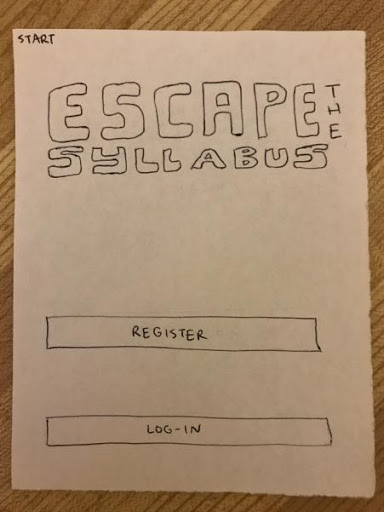 START
ESCAPE THE
SYLLABUS
REGISTER
LOG-IN